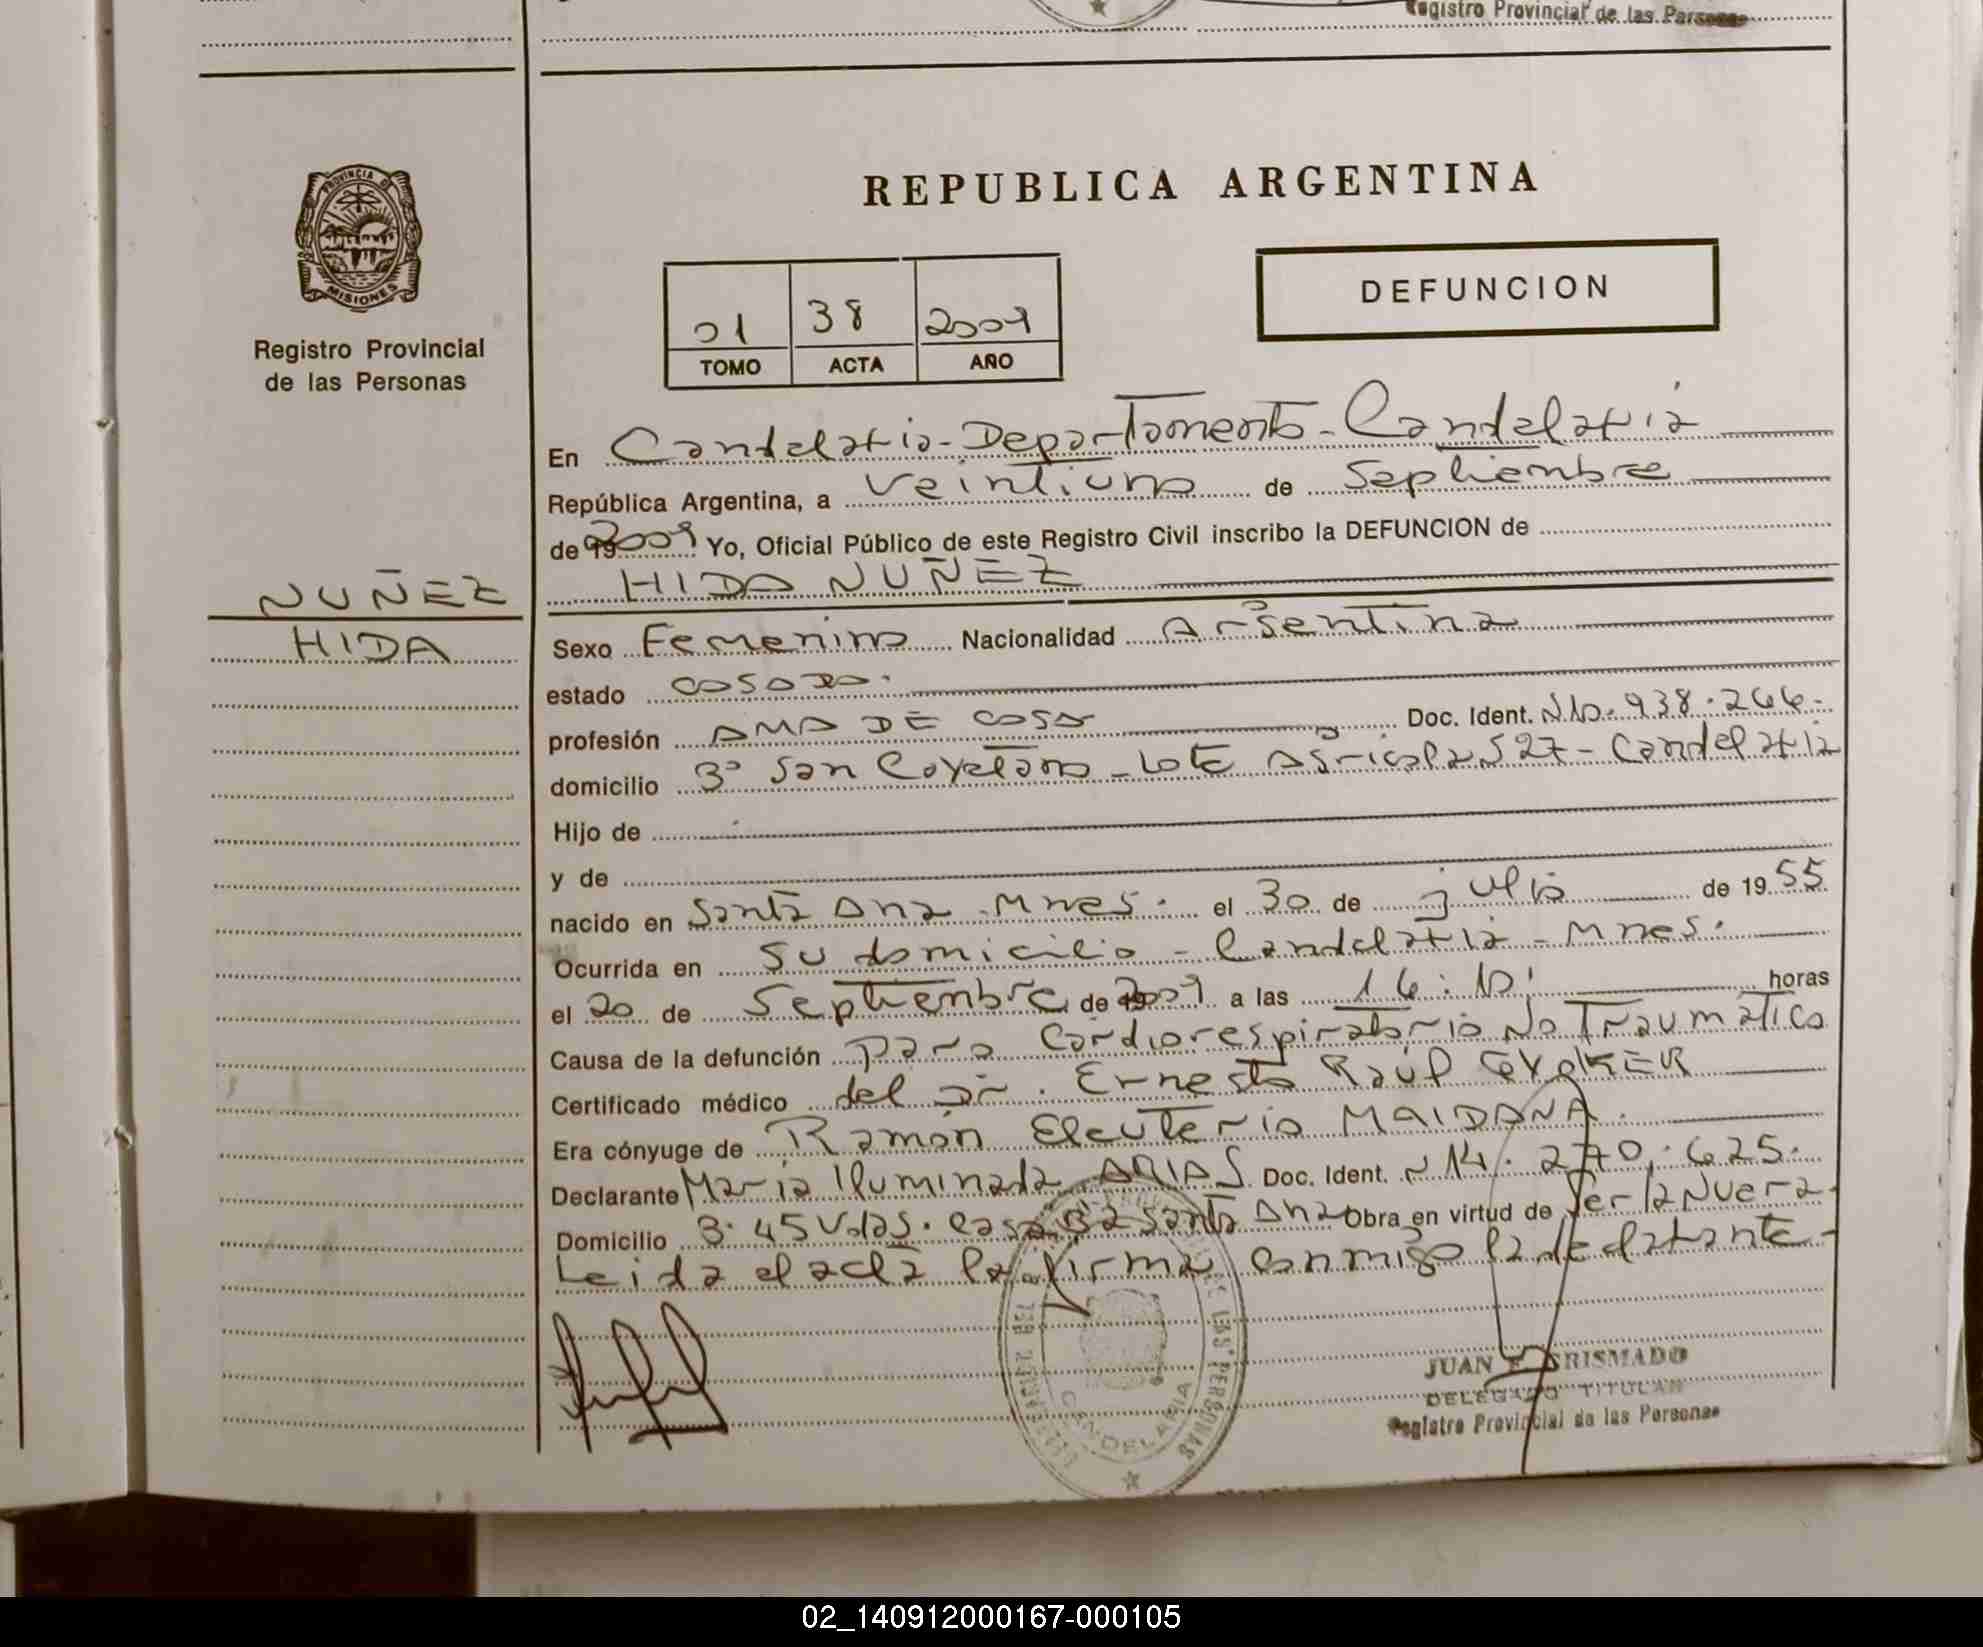 Registro Provincial de las Personas
PROVINCIA DE
MISIONES
Registro Provincial
de las Personas
REPUBLICA ARGENTINA
01 38 2009
TOMO ACTA AÑO
DEFUNCION
En Candelaria-Departamento-Candelaria
República Argentina, a veintiuno de Septiembre
de 2009 Yo, Oficial Público de este Registro Civil inscribo la DEFUNCION de
NUÑEZ
HIDA NUÑEZ
HIDA
Sexo Femenino Nacionalidad Argentina
estado casada.
profesión AMA DE casa Doc. Ident. 938.266-
domicilio B° San Cayetano - Lote Agricola 527 - Candelaria
Hijo de
y de
nacido en Santa Ana - Mnes. el 30 de julio de 1955
Ocurrida en su domicilio - Candelaria - Mnes.
el 20 de Septiembre de 2009 a las 16:10' horas
Causa de la defunción paro cardiorespiratorio No Traumático
Certificado médico del Dr. Ernesto Raúl
Era cónyuge de Ramón Eleuterio MAIDANA.
Declarante Maria Iluminada ARIAS Doc. Ident. N 14.270.625.
Domicilio B. 45 Vdas. casa Santa Ana Obra en virtud de Ser la Nuera.
Leida el acta la firma conmigo la declarante-
REGISTRO PROVINCIAL DE LAS PERSONAS
CANDELARIA
JUAN GRISMADO
DELEGADO TITULAR
Registro Provincial de las Personas
02_140912000167-000105